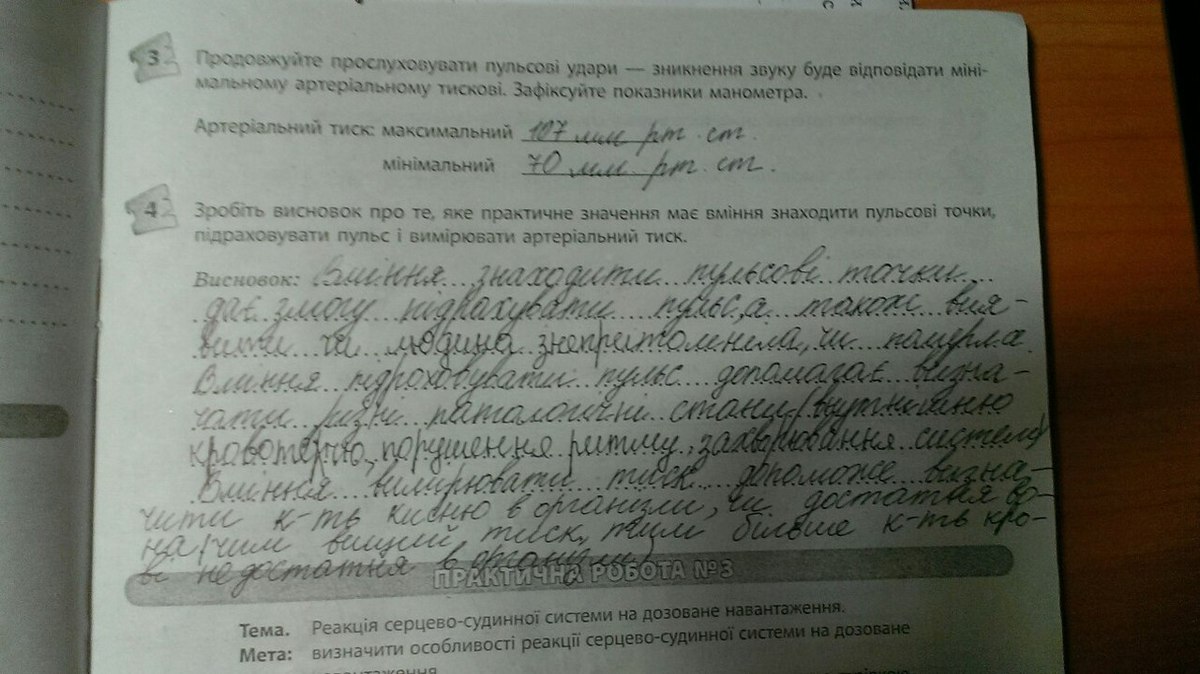 3 Продовжуйте прослуховувати пульсові удари — зникнення звуку буде відповідати міні-
мальному артеріальному тискові. Зафіксуйте показники манометра.
Артеріальний тиск: максимальний 107 мм рт. ст.
мінімальний 70 мм рт. ст.
4 Зробіть висновок про те, яке практичне значення має вміння знаходити пульсові точки,
підраховувати пульс і вимірювати артеріальний тиск.
Висновок: Вміння знаходити пульсові точки
дає змогу підрахувати пульс, а також вия-
вити чи людина знепритомніла, чи померла.
Вміння підроховувати пульс допомагає визна-
чати різні паталогічні стани (внутнішню
кровотечю, порушення ритму, захворювання системи)
Вміння вимірювати тиск допоможе визна-
чити к-ть кисню в організмі, чи достатня во-
на (чим вищий тиск, тим більше к-ть кро-
ві недостатня в організмі)
ПРАКТИЧНА РОБОТА №3
Тема. Реакція серцево-судинної системи на дозоване навантаження.
Мета: визначити особливості реакції серцево-судинної системи на дозоване
навантаження